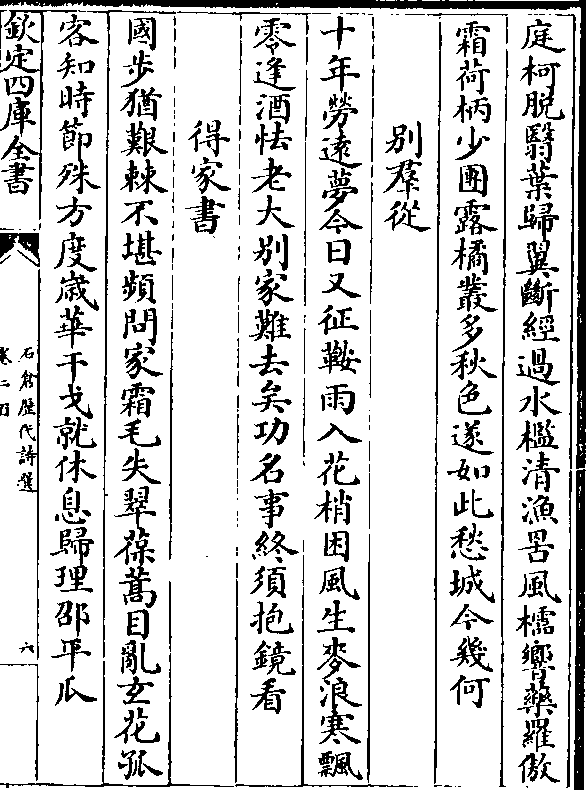 庭柯脫翳葉歸翼斷經過水檻清漁罟風櫺響藥羅傲
霜荷柄少團露橘叢多秋色遂如此愁城今幾何
别羣從
十年勞逺夢今日又征鞍雨入花梢困風生麥浪寒飄
零逢酒怯老大别家難去矣功名事終須抱鏡看
得家書
國步猶艱棘不堪頻問家霜毛失翠葆蒿目亂玄花孤
客知時節殊方度嵗華干戈就休息歸理邵平瓜
欽定四庫全書
石倉歴代詩選
六